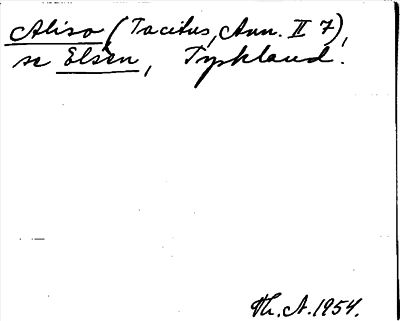 Aliso (Tacitus, Ann. II 7),
se Elsen, Tyskland.
Th. A. 1954.